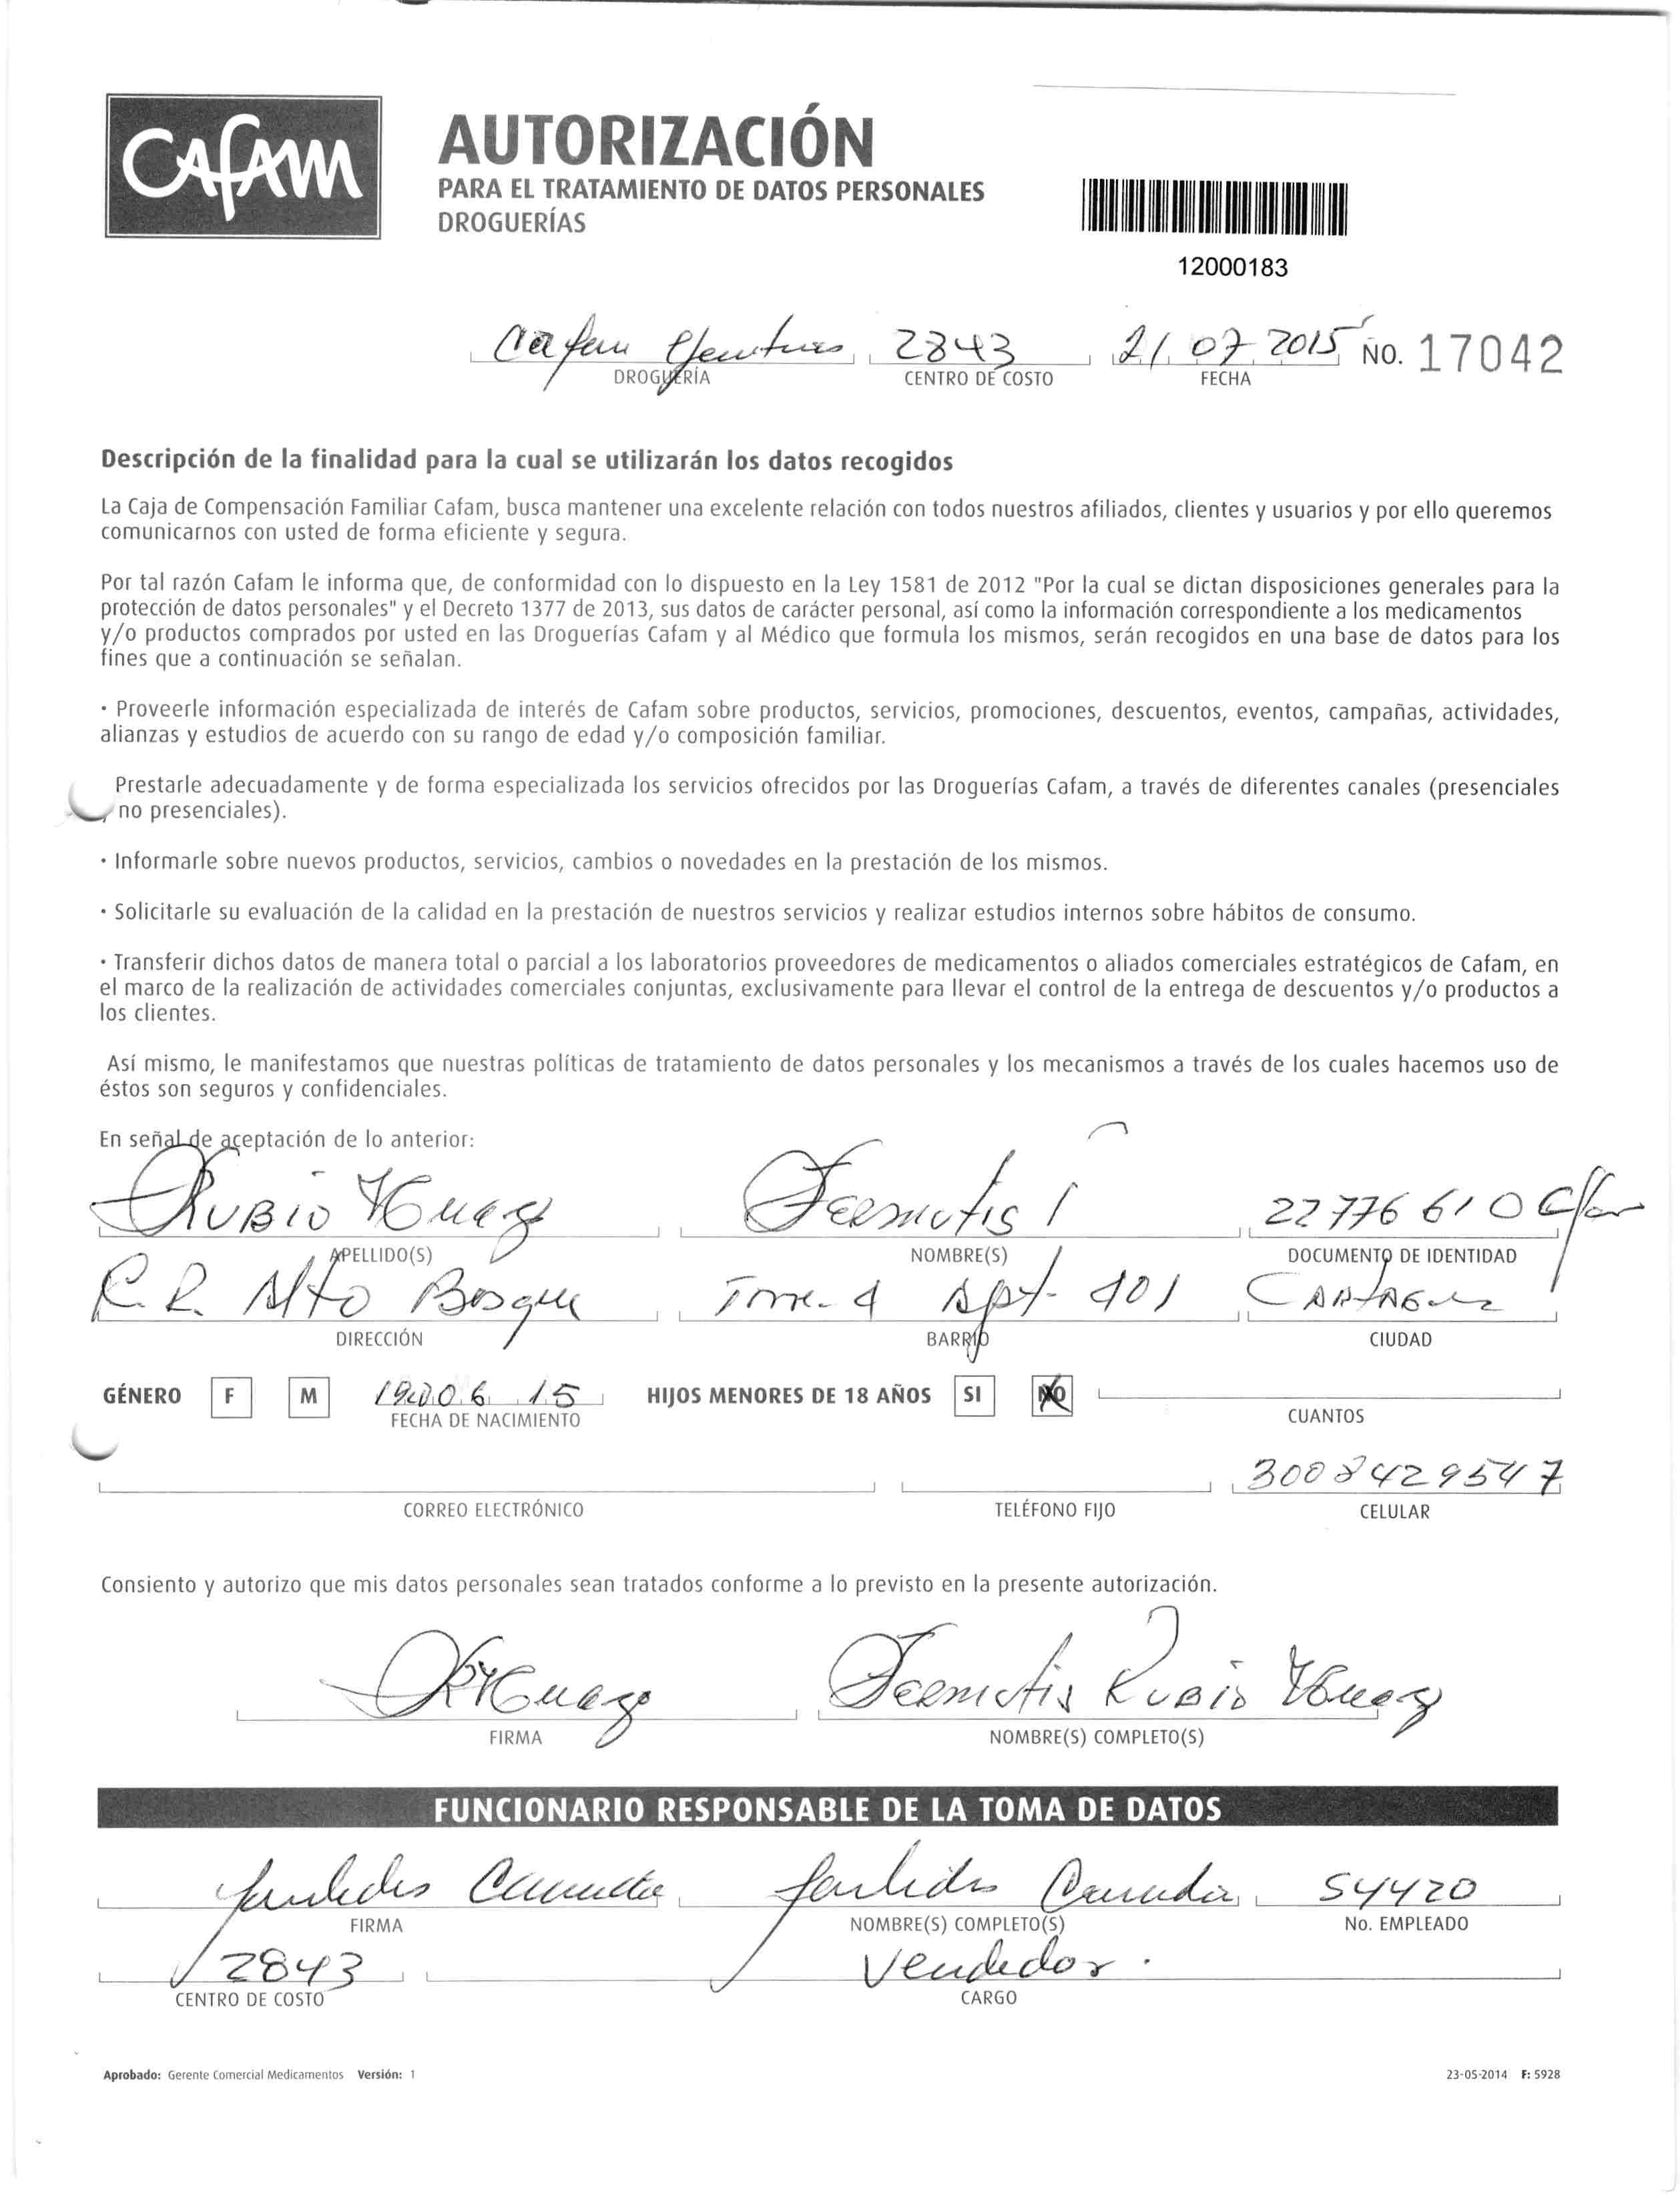 CAFAM
AUTORIZACIÓN
PARA EL TRATAMIENTO DE DATOS PERSONALES
DROGUERÍAS
12000183
Cafam 2843 21 07 2015 No. 17042
DROGUERÍA CENTRO DE COSTO FECHA
Descripción de la finalidad para la cual se utilizarán los datos recogidos
La Caja de Compensación Familiar Cafam, busca mantener una excelente relación con todos nuestros afiliados, clientes y usuarios y por ello queremos
comunicarnos con usted de forma eficiente y segura.
Por tal razón Cafam le informa que, de conformidad con lo dispuesto en la Ley 1581 de 2012 "Por la cual se dictan disposiciones generales para la
protección de datos personales" y el Decreto 1377 de 2013, sus datos de carácter personal, así como la información correspondiente a los medicamentos
y/o productos comprados por usted en las Droguerías Cafam y al Médico que formula los mismos, serán recogidos en una base de datos para los
fines que a continuación se señalan.
· Proveerle información especializada de interés de Cafam sobre productos, servicios, promociones, descuentos, eventos, campañas, actividades,
alianzas y estudios de acuerdo con su rango de edad y/o composición familiar.
Prestarle adecuadamente y de forma especializada los servicios ofrecidos por las Droguerías Cafam, a través de diferentes canales (presenciales
no presenciales).
· Informarle sobre nuevos productos, servicios, cambios o novedades en la prestación de los mismos.
· Solicitarle su evaluación de la calidad en la prestación de nuestros servicios y realizar estudios internos sobre hábitos de consumo.
· Transferir dichos datos de manera total o parcial a los laboratorios proveedores de medicamentos o aliados comerciales estratégicos de Cafam, en
el marco de la realización de actividades comerciales conjuntas, exclusivamente para llevar el control de la entrega de descuentos y/o productos a
los clientes.
Así mismo, le manifestamos que nuestras políticas de tratamiento de datos personales y los mecanismos a través de los cuales hacemos uso de
éstos son seguros y confidenciales.
En señal de aceptación de lo anterior:
Rubio 22776610
APELLIDO(S) NOMBRE(S) DOCUMENTO DE IDENTIDAD
C.R. Alto Bosque Torre 4 Apt. 401 Cartagena
DIRECCIÓN BARRIO CIUDAD
GÉNERO F M 06 15 HIJOS MENORES DE 18 AÑOS SI NO
FECHA DE NACIMIENTO CUANTOS
3008429547
CORREO ELECTRÓNICO TELÉFONO FIJO CELULAR
Consiento y autorizo que mis datos personales sean tratados conforme a lo previsto en la presente autorización.
Rubio
FIRMA NOMBRE(S) COMPLETO(S)
FUNCIONARIO RESPONSABLE DE LA TOMA DE DATOS
54420
FIRMA NOMBRE(S) COMPLETO(S) No. EMPLEADO
2843 Vendedor.
CENTRO DE COSTO CARGO
Aprobado: Gerente Comercial Medicamentos Versión: 1 23-05-2014 F: 5928